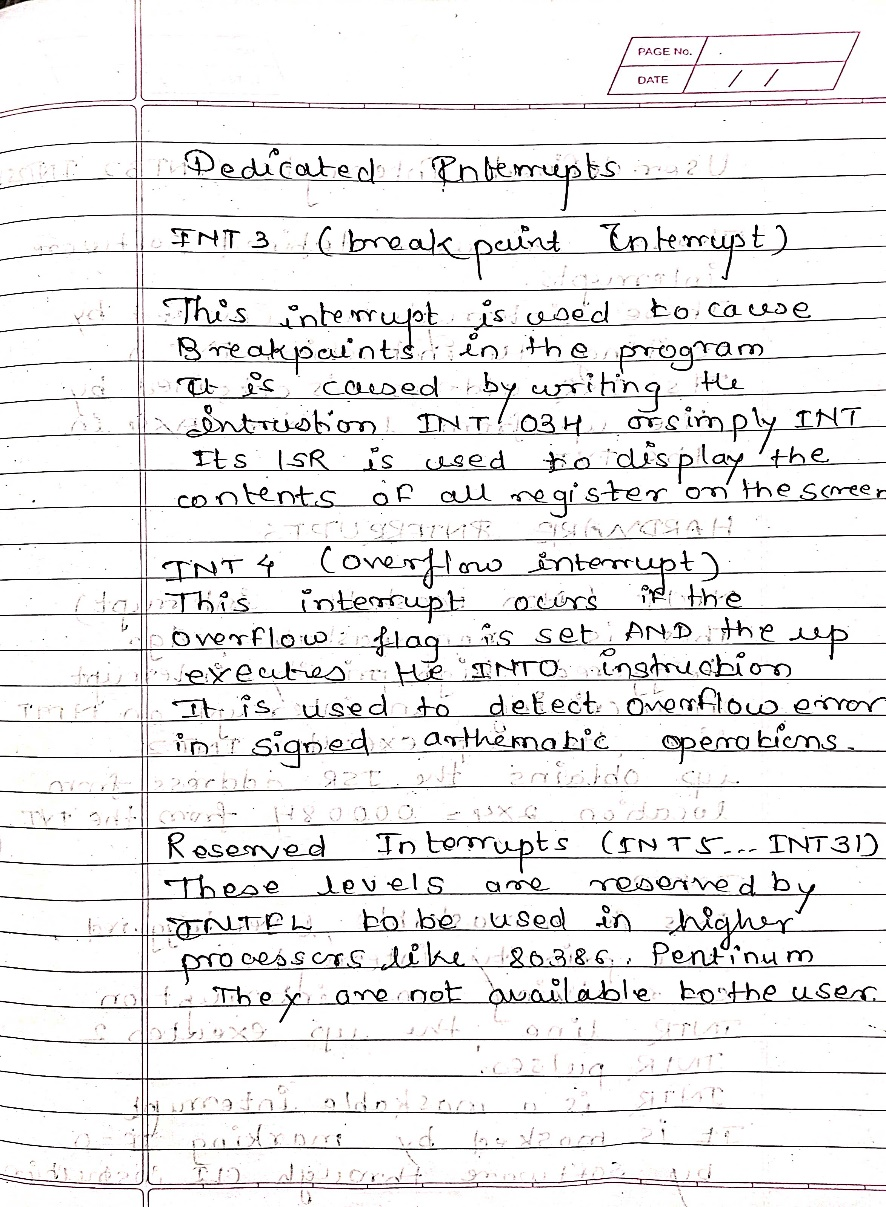 PAGE No.
DATE / /
Dedicated Interrupts
INT 3 (break paint Interrupt)
This interrupt is used to cause
Breakpaints in the program
It is caused by writing the
intruction INT 03H or simply INT
Its ISR is used to display the
contents of all register on the screen
INT 4 (overflow interrupt)
This interrupt ocurs if the
overflow flag is set AND the up
executres the INTO instruction
It is used to detect overflow error
in signed arthematic operations.
Reserved Interrupts (INT5... INT31)
These levels are reserved by
INTEL to be used in higher
processors like 80386. Pentinum
They are not available to the user.